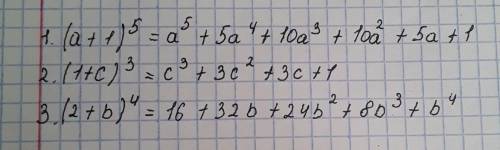 1. (a+1)⁵ = a⁵ + 5a⁴ + 10a³ + 10a² + 5a + 1
2. (1+c)³ = c³ + 3c² + 3c + 1
3. (2+b)⁴ = 16 + 32b + 24b² + 8b³ + b⁴